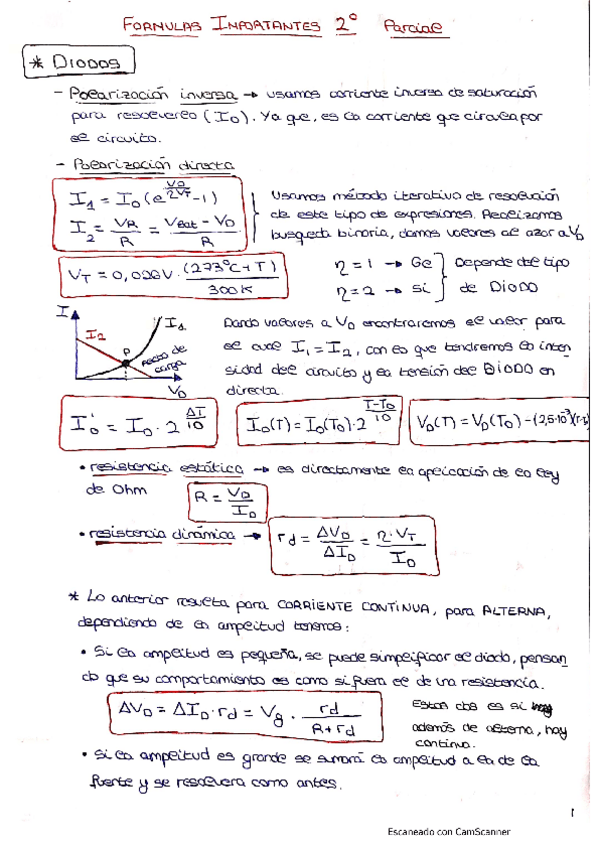 FORMULAS IMPORTANTES 2º Parcial
* DIODOS
- Polarización inversa → usamos corriente inversa de saturación
para resolverlo (I0). Ya que, es la corriente que circula por
el circuito.
- Polarización directa
I1 = I0 (e^(VD/ηVT) - 1)
I2 = VR/R = (VBat - VD)/R
Usamos método iterativo de resolución
de este tipo de expresiones. Realizamos
busqueda binaria, damos valores al azar a VD
VT = 0,026V · (273ºC + T)/300K
η = 1 → Ge
η = 2 → Si
Depende del tipo
de DIODO
I
I2
I1
P
Recta de
carga
VD
Dando valores a VD encontraremos el valor para
el cual I1 = I2, con lo que tendremos la inten
sidad del circuito y la tensión del DIODO en
directa.
I0' = I0 · 2^(ΔT/10)
I0(T) = I0(T0) · 2^((T-T0)/10)
VD(T) = VD(T0) - (2,5·10^-3)(T-T
• resistencia estática → es directamente la aplicación de la ley
de Ohm
R = VD/ID
• resistencia dinámica →
rd = ΔVD/ΔID = η·VT/ID
* Lo anterior resulta para CORRIENTE CONTINUA, para ALTERNA,
dependiendo de la amplitud tenemos:
• Si la amplitud es pequeña, se puede simplificar el diodo, pensan
do que su comportamiento es como si fuera el de una resistencia.
ΔVD = ΔID · rd = Vg · rd/(R + rd)
Estas dos es si
además de alterna, hay
continua.
• Si la amplitud es grande se sumará la amplitud a la de la
fuente y se resolverá como antes.
1
Escaneado con CamScanner